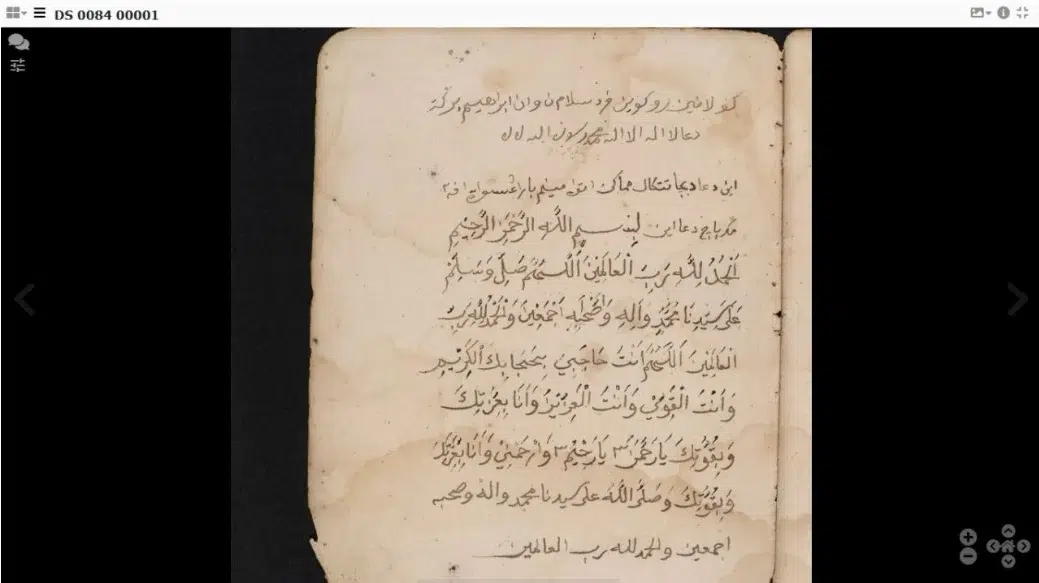 DS 0084 00001
دعا لا اله الا الله محمد رسول الله
اين دعا دبجا تتكال
دعا اين بِسْمِ اللَّهِ الرَّحْمَنِ الرَّحِيْمِ
اَلْحَمْدُ لِلَّهِ رَبِّ الْعَالَمِيْنَ اَللَّهُمَّ صَلِّ وَسَلِّمْ
عَلَى سَيِّدِنَا مُحَمَّدٍ وَآلِهِ وَاَصْحَبِهِ اَجْمَعِيْنَ وَالْحَمْدُ لِلَّهِ رَبِّ
الْعَالَمِيْنَ اَللَّهُمَّ اَنْتَ حَاجِبِيْ بِحِجَابِكَ الْكَرِيْمِ
وَاَنْتَ الْقَوِيُّ وَاَنْتَ الْعَزِيْزُ وَاَنَا بِعِزَّتِكَ
وَبِقُوَّتِكَ يَا رَحْمَنُ ٣ يَا رَحِيْمُ ٣ وَارْحَمْنِيْ وَاَنَا بِعِزَّتِكَ
وَبِقُوَّتِكَ وَصَلَّى اللَّهُ على سيدنا محمد واله وصحبه
اجمعين والحمد لله رب العالمين